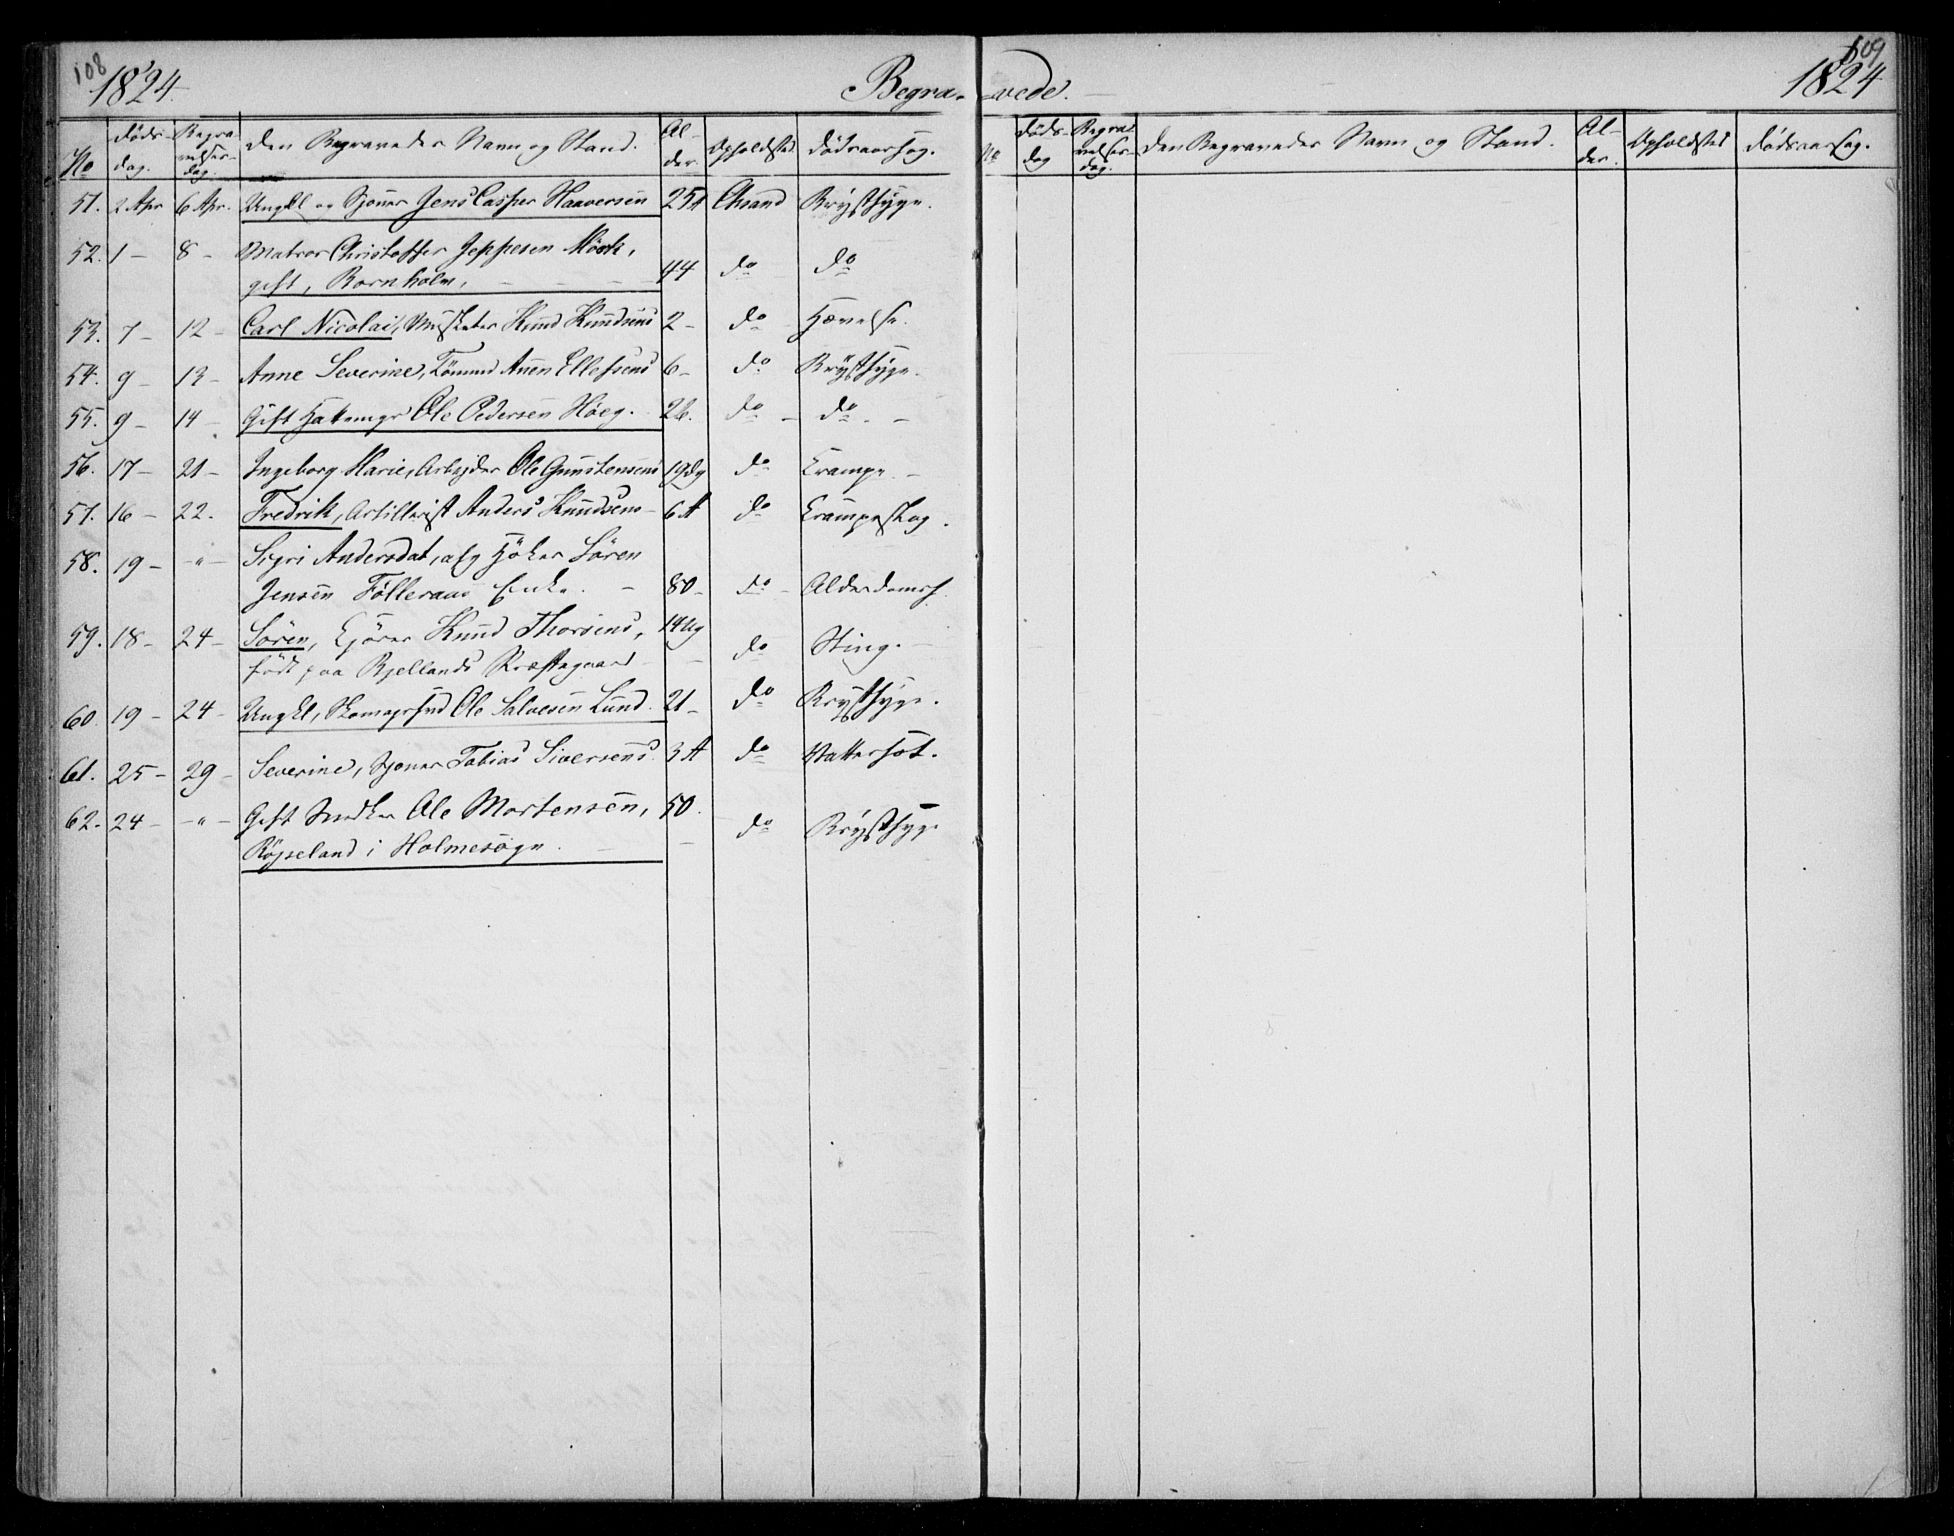 108
1824.
Begra-
No
Døds-
dag.
Begra-
velses-
dag.
Den Begravedes Navn og Stand.
Al-
der.
Opholdsted
Dødsaarsag.
51. 2 Apr 6 Apr. Ungkl og Sjouer Jens Casper Haaversen 25 A Chsand Brystsyge.
52. 1 – 8 – Matros Christoffer Jeppesen Möck,
gift, Bornholm. 44 do do
53. 7 – 12 – Carl Nicolai, Musketer Knud Knudsens 2 – do Hævelse.
54. 9 – 13 – Anne Severine, Tömmd Aüen Ellefsens 6 – do Brystsyge.
55. 9 – 14 – Gift Hattemgr Ole Pedersen Höeg. 26. do – do. –
56. 17 – 21 – Ingeborg Marie, Arbejder Ole Gunstensens 19 Dg do Krampe. –
57. 16 – 22. Fredrik, Artillerist Anders Knudsens – 6 A do Krampeslag.
58. 19 – – " – Sigri Andersdat, afg Höker Sören
Jensen Fölleraas Enke. – 80 – do – Alderdomsf.
59. 18 – 24 – Sören, Kjörer Knud Thorsens, 14 Ug
født paa Bjellands Præstegaard – do Sting. –
60. 19 – 24 – Ungkl, Skomagrsvd Ole Salvesen Lund. 21 – do Brystsyge.
61. 25 – 29 – Severine, Sjouer Tobias Siversens. 3 A do Vattersot.
62. 24 – – " – Gift Snedker Ole Mortensen, 50.
Röjseland i Holmesogn. – do Brystsyge
109
1824
vede.
No
Døds-
dag
Begra-
velses-
dag.
Den Begravedes Navn og Stand.
Al-
der.
Opholdsted
Dødsaarsag.